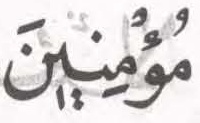 مُؤْمِنِينَ